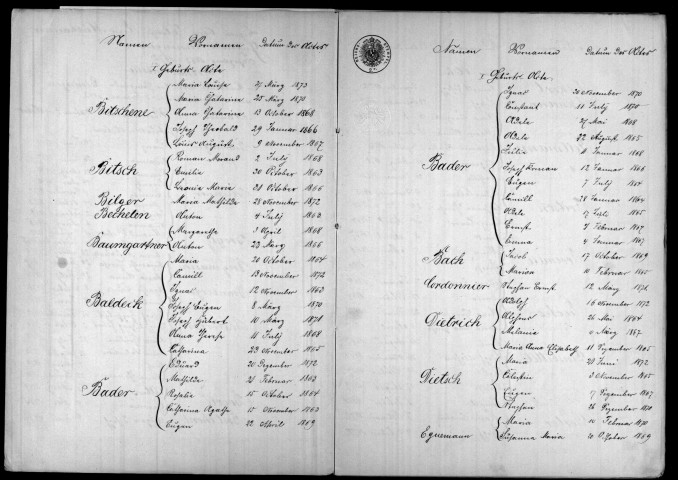 Namen Vornamen Datum der Akten
I Geburts Akte
Bitschene
Maria Louise 27 März 1873
Maria Catarina 25 März 1870
Anna Catarina 13 October 1868
Joseph Theobald 29 Januar 1866
Louis Auguste 9 November 1867
Bitsch
Roman Morand 2 July 1868
Emilie 30 October 1863
Leonie Marie 24 October 1866
Bilger Marie Mathilde 28 November 1872
Becheten Anton 4 July 1863
Baumgartner
Margaretha 3 April 1868
Anton 23 März 1866
Baldeck
Maria 20 October 1864
Camill 13 November 1872
Ignas 12 November 1863
Joseph Eugen 8 März 1870
Joseph Hubert 10 März 1871
Anna Therese 11 July 1868
Catharina 23 November 1865
Bader
Eduard 20 Dezember 1872
Mathilde 21 Februar 1863
Rosalie 15 October 1864
Catharina Agatha 15 November 1863
Eugen 22 April 1869
Namen Vornamen Datum der Akten
I Geburts Akte
Bader
Ignas 20 November 1870
Constant 11 July 1870
Adele 27 Mai 1868
Adele 22 August 1865
Julie 11 Januar 1868
Joseph Roman 12 Januar 1866
Eugen 7 July 1864
Camill 28 Januar 1864
Adele 17 July 1865
Ernest 7 Februar 1867
Emma 4 Januar 1867
Bach
Jacob 17 October 1869
Marien 10 Februar 1865
Cordonnier Stephan Ernest 12 März 1871
Dietrich
Adolph 16 November 1872
Alphons 26 Mai 1864
Melanie 6 März 1867
Maria Anna Elisabeth 11 Dezember 1865
Dietsch
Maria 21 Juni 1872
Celestin 3 November 1865
Eugen 7 Dezember 1867
Stephan 26 Dezember 1870
Egnemann
Maria 10 Februar 1870
Susanna Maria 20 October 1869